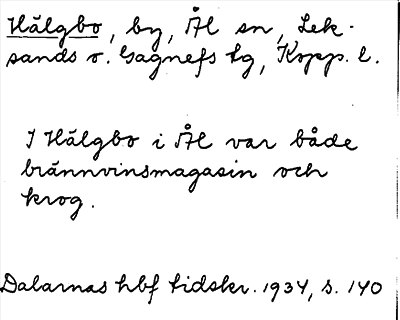 Hälgbo, by, Ål sn, Lek-
sands o. Gagnefs tg, Kopp. l.
I Hälgbo i Ål var både
brännvinsmagasin och
krog.
Dalarnas hbf tidskr. 1934, s. 140